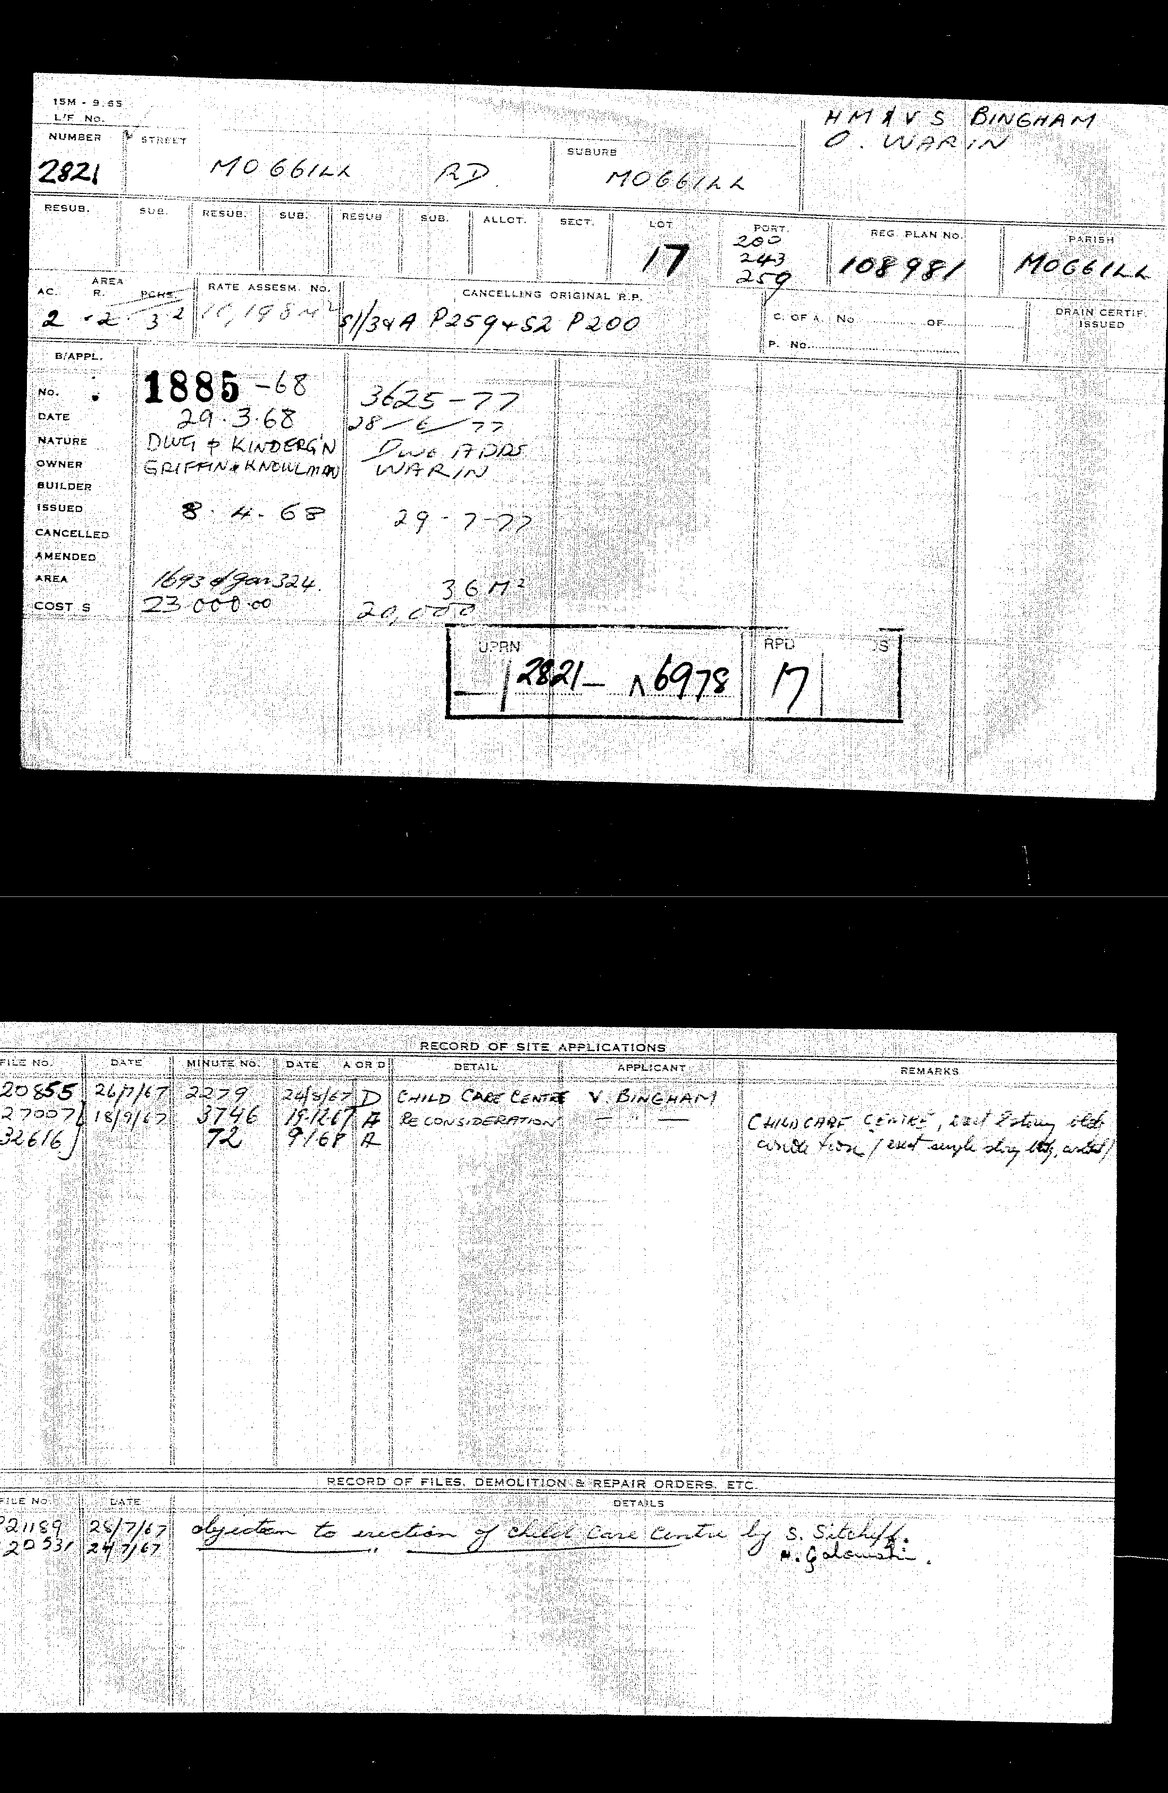 15M - 9.65
L/F No.
H M & V S BINGHAM
O. WARIN
NUMBER STREET SUBURB
2821 MOGGILL RD. MOGGILL
RESUB. SUB. RESUB. SUB. RESUB SUB. ALLOT. SECT. LOT PORT. REG. PLAN NO. PARISH
17 200 243 259 108981 MOGGILL
AREA
AC. R. PCHS. RATE ASSESM. NO. CANCELLING ORIGINAL R.P. C. OF A. No. OF DRAIN CERTIF. ISSUED
2 - 2 - 3 2 10,198 M2 S1/34A P259 & S2 P200
P. No.
B/APPL.
No. 1885 -68 3625-77
DATE 29.3.68 28/6/77
NATURE DWG & KINDERG'N DWG ADDS
OWNER GRIFFIN & KNOWLMAN WARIN
BUILDER
ISSUED 8.4.68 29-7-77
CANCELLED
AMENDED
AREA 1693 324. 36 M2
COST $ 23.000.00 20,000
UPRN RPD S
2821- 6978 17
RECORD OF SITE APPLICATIONS
FILE NO. DATE MINUTE NO. DATE A OR D DETAIL APPLICANT REMARKS
20855 26/7/67 2279 24/8/67 D CHILD CARE CENTRE V. BINGHAM
27007 18/9/67 3746 19.12.67 A RECONSIDERATION — " — CHILDCARE CENTRE,
32616 72 9/1/68 A
RECORD OF FILES, DEMOLITION & REPAIR ORDERS, ETC.
FILE NO. DATE DETAILS
21189 28/7/67 objection to erection of child care centre by S.
20531 24/7/67 "